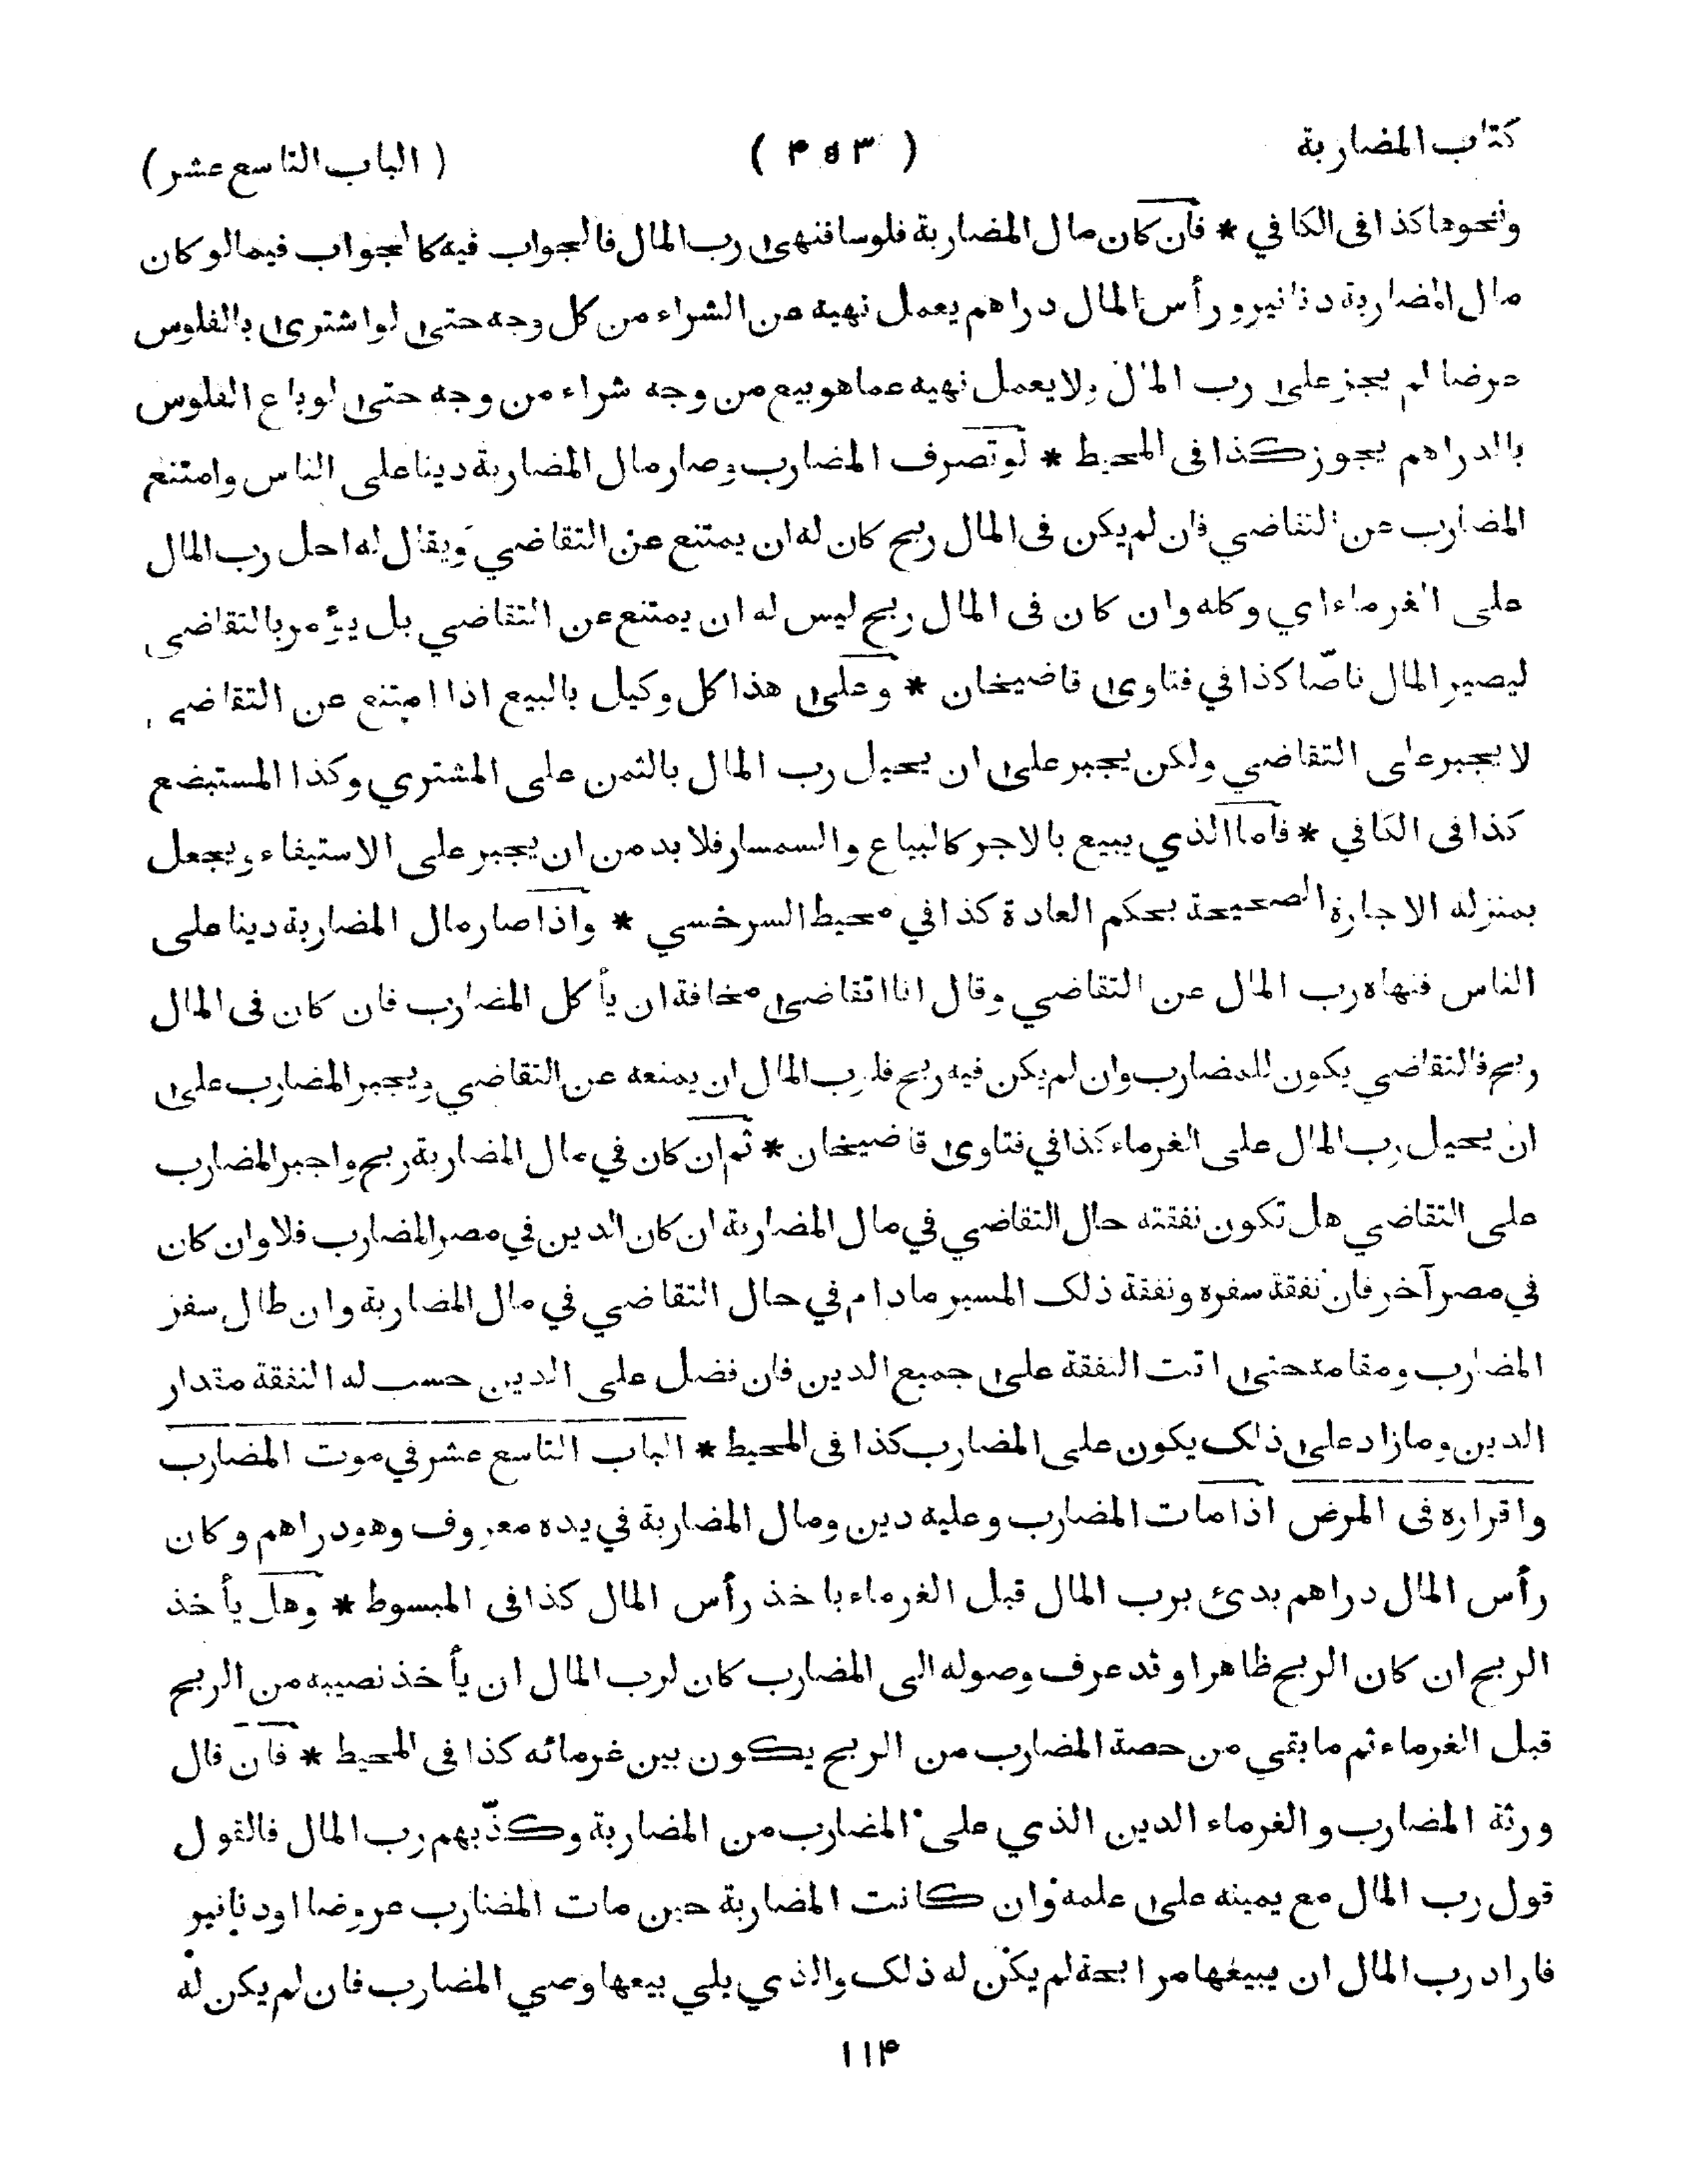 كتاب المضاربة
( ۴۵۳ )
( الباب التاسع عشر )
ونحوها كذا فى الكافي * فان كان مال المضاربة فلوسا فنهى رب المال فالجواب فيه كالجواب فيما لو كان
مال المضاربة دنانير ورأس المال دراهم يعمل نهيه عن الشراء من كل وجه حتى لو اشترى بالفلوس
عرضا لم يجز على رب المال ولا يعمل نهيه عما هو بيع من وجه شراء من وجه حتى لو باع الفلوس
بالدراهم يجوز كذا فى المحيط * لو تصرف المضارب وصار مال المضاربة دينا على الناس وامتنع
المضارب عن التقاضي فان لم يكن فى المال ربح كان له ان يمتنع عن التقاضي ويقال له احل رب المال
على الغرماء اي وكله وان كان فى المال ربح ليس له ان يمتنع عن التقاضي بل يؤمر بالتقاضى
ليصير المال ناضّا كذا في فتاوى قاضيخان * وعلى هذا كل وكيل بالبيع اذا امتنع عن التقاضي
لا يجبر على التقاضي ولكن يجبر على ان يحيل رب المال بالثمن على المشتري وكذا المستبضع
كذا فى الكافي * فاما الذي يبيع بالاجر كالبياع والسمسار فلا بد من ان يجبر على الاستيفاء ويجعل
بمنزله الاجارة الصحيحة بحكم العادة كذا في محيط السرخسي * واذا صار مال المضاربة دينا على
الناس فنهاه رب المال عن التقاضي وقال انا اتقاضى مخافة ان يأكل المضارب فان كان فى المال
ربح فالتقاضي يكون للمضارب وان لم يكن فيه ربح فلرب المال ان يمنعه عن التقاضي ويجبر المضارب على
ان يحيل رب المال على الغرماء كذا في فتاوى قاضيخان * ثم ان كان في مال المضاربة ربح واجبر المضارب
على التقاضي هل تكون نفقته حال التقاضي في مال المضاربة ان كان الدين في مصر المضارب فلا وان كان
في مصر آخر فان نفقة سفره ونفقة ذلك المسير ما دام في حال التقاضي في مال المضاربة وان طال سفر
المضارب ومقامه حتى اتت النفقة على جميع الدين فان فضل على الدين حسب له النفقة مقدار
الدين وما زاد على ذلك يكون على المضارب كذا فى المحيط * الباب التاسع عشر في موت المضارب
واقراره فى المرض اذا مات المضارب وعليه دين ومال المضاربة في يده معروف وهو دراهم وكان
رأس المال دراهم بدئ برب المال قبل الغرماء باخذ رأس المال كذا فى المبسوط * وهل يأخذ
الربح ان كان الربح ظاهرا وقد عرف وصوله الى المضارب كان لرب المال ان يأخذ نصيبه من الربح
قبل الغرماء ثم ما بقي من حصة المضارب من الربح يكون بين غرمائه كذا فى المحيط * فان قال
ورثة المضارب والغرماء الدين الذي على المضارب من المضاربة وكذّبهم رب المال فالقول
قول رب المال مع يمينه على علمه وان كانت المضاربة حين مات المضارب عروضا او دنانير
فاراد رب المال ان يبيعها مرابحة لم يكن له ذلك والذي يلي بيعها وصي المضارب فان لم يكن له
۱۱۴